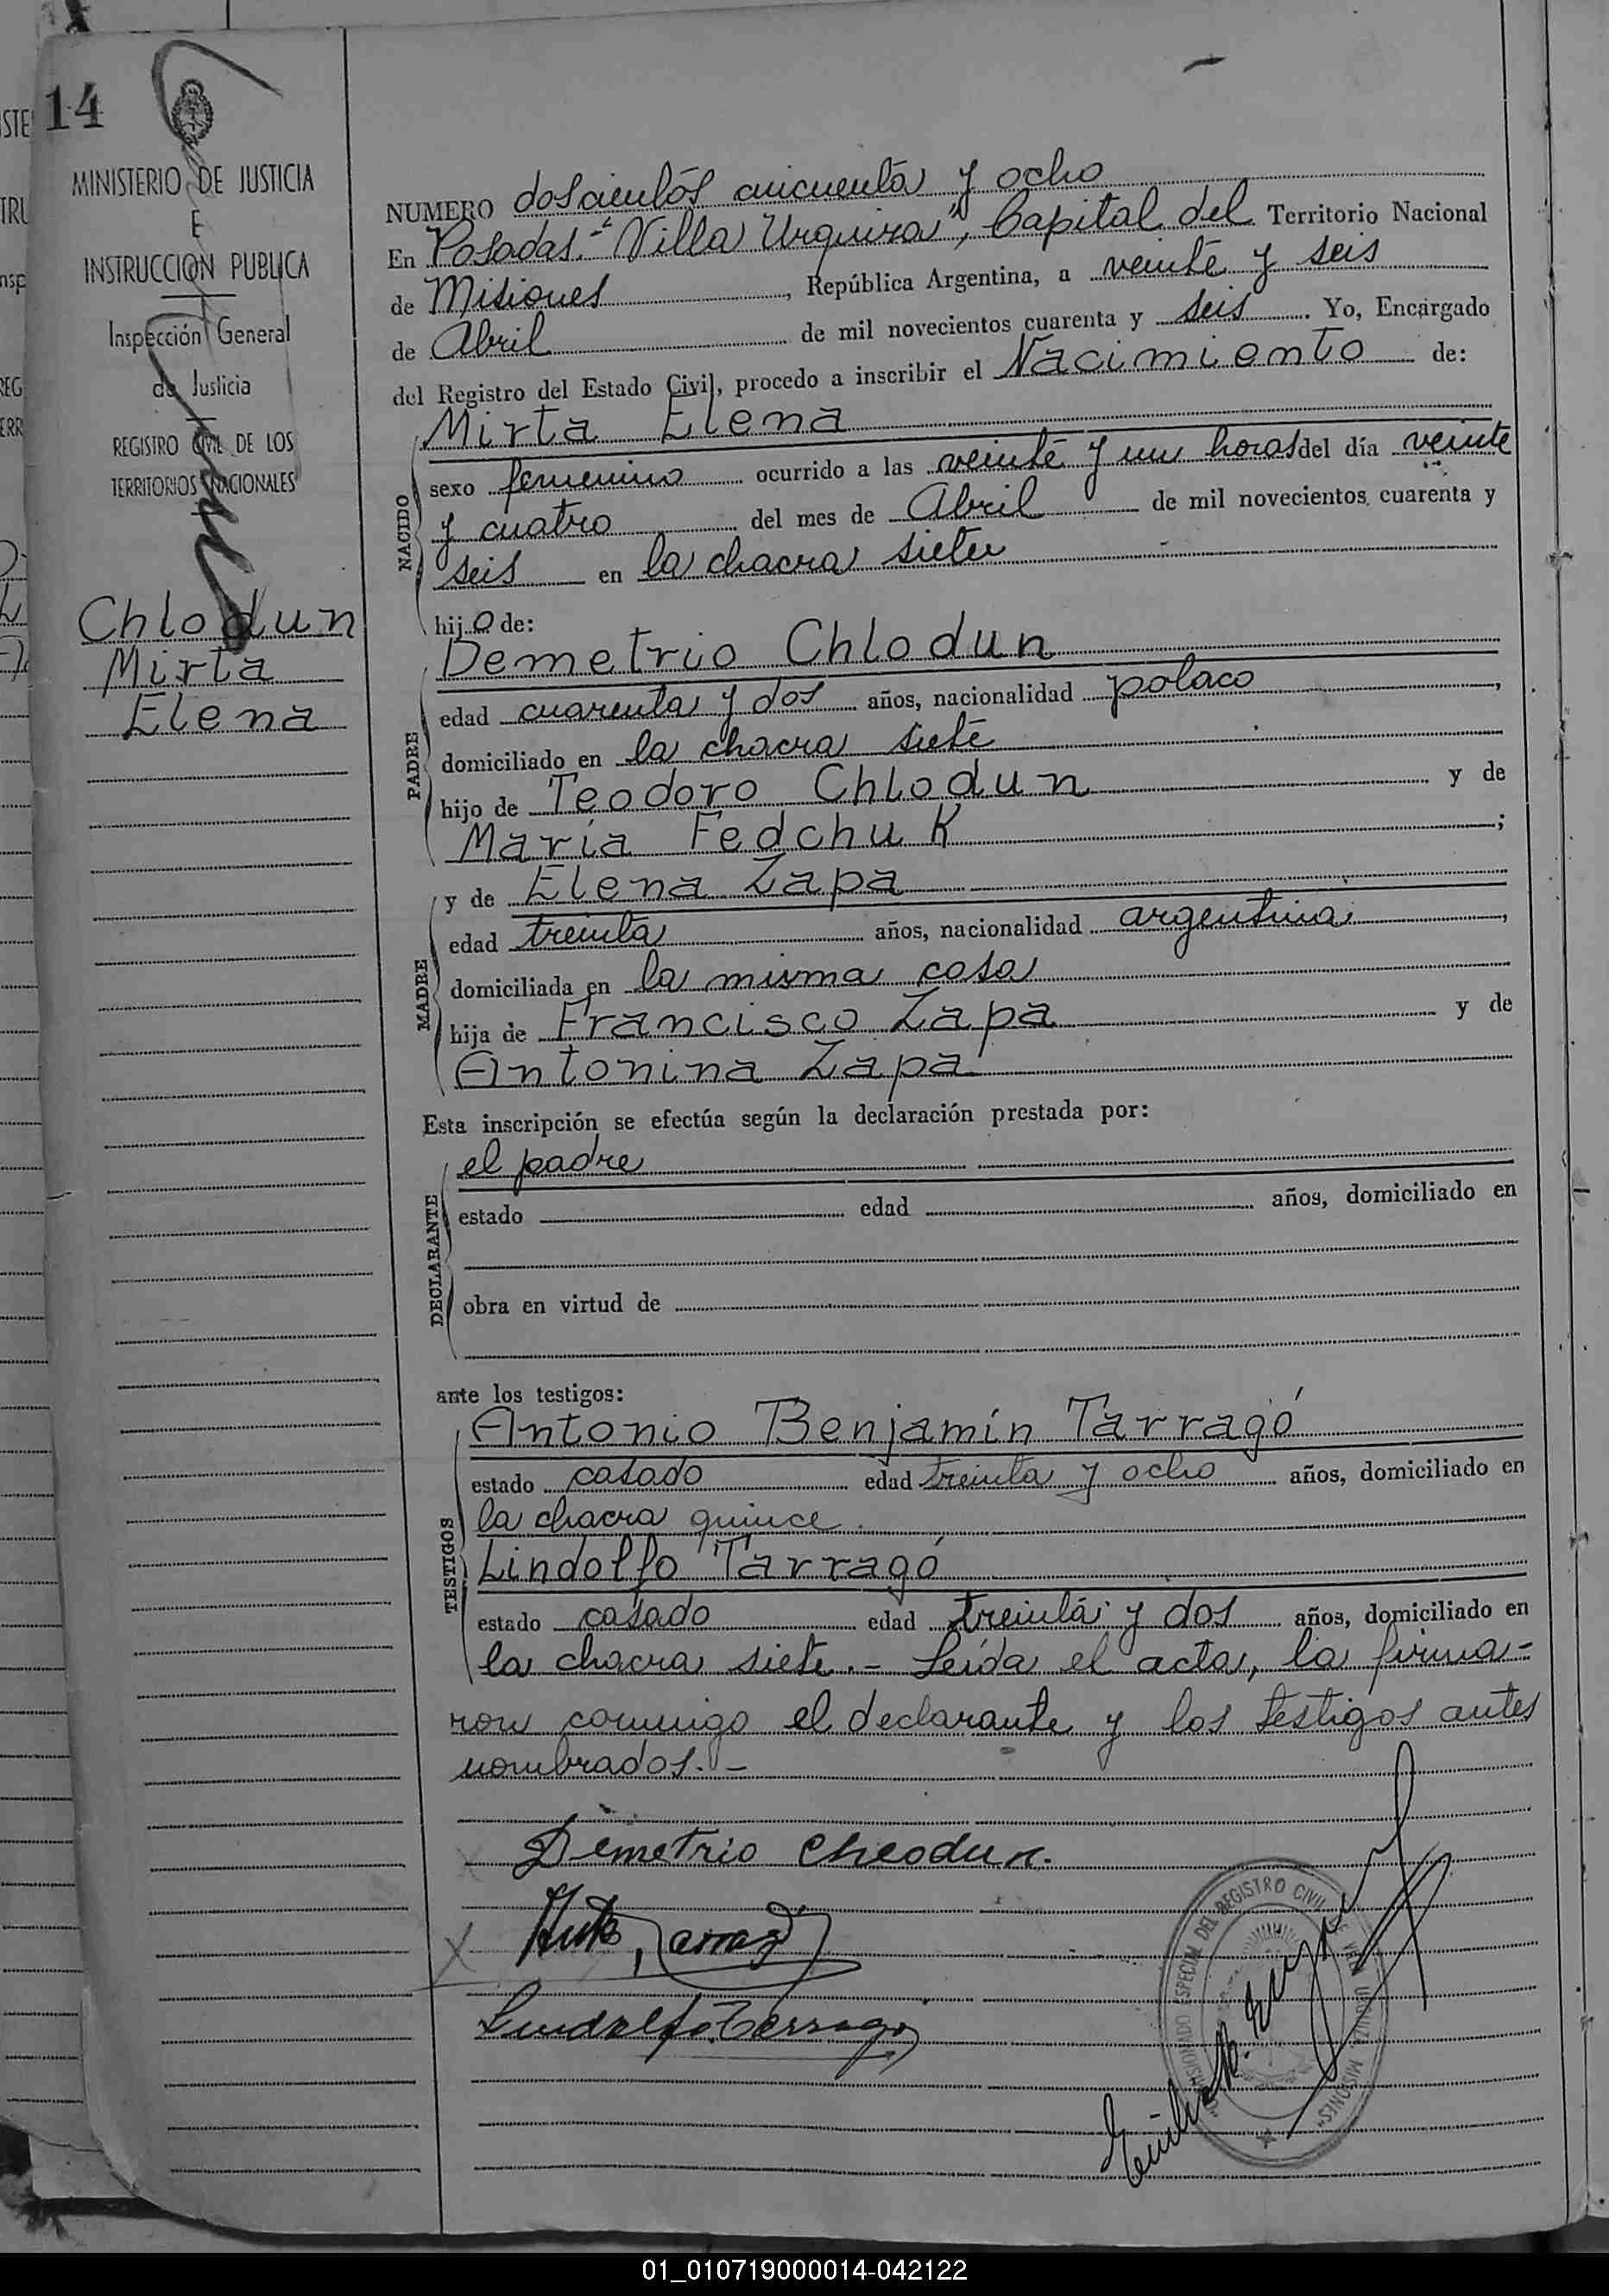 14
MINISTERIO DE JUSTICIA
E
INSTRUCCION PUBLICA
Inspección General
de Justicia
REGISTRO CIVIL DE LOS
TERRITORIOS NACIONALES
Chlodun
Mirta
Elena
NUMERO doscientos cincuenta y ocho
En Posadas.- "Villa Urquiza", Capital del Territorio Nacional
de Misiones, República Argentina, a veinte y seis
de Abril de mil novecientos cuarenta y seis. Yo, Encargado
del Registro del Estado Civil, procedo a inscribir el Nacimiento de:
NACIDO
Mirta Elena
sexo femenino ocurrido a las veinte y un horas del día veinte
y cuatro del mes de Abril de mil novecientos cuarenta y
seis en la chacra siete
hijo de:
PADRE
Demetrio Chlodun
edad cuarenta y dos años, nacionalidad polaco,
domiciliado en la chacra siete
hijo de Teodoro Chlodun y de
María Fedchuk;
MADRE
y de Elena Zapa
edad treinta años, nacionalidad argentina,
domiciliada en la misma casa
hija de Francisco Zapa y de
Antonina Zapa
Esta inscripción se efectúa según la declaración prestada por:
DECLARANTE
el padre
estado edad años, domiciliado en
obra en virtud de
ante los testigos:
TESTIGOS
Antonio Benjamín Tarragó
estado casado edad treinta y ocho años, domiciliado en
la chacra quince.
Lindolfo Tarragó
estado casado edad treinta y dos años, domiciliado en
la chacra siete.- Leída el acta, la firma-
ron conmigo el declarante y los testigos antes
nombrados.-
Demetrio Cheodun.
Lindolfo Tarrago
ESPECIAL DEL REGISTRO CIVIL
MISIONES
01_010719000014-042122